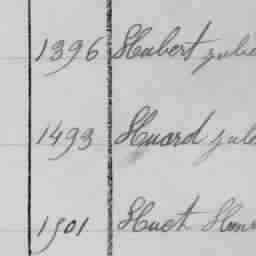 1396 Hubert Julie
1493 Huard Jule
1501 Huet Hen